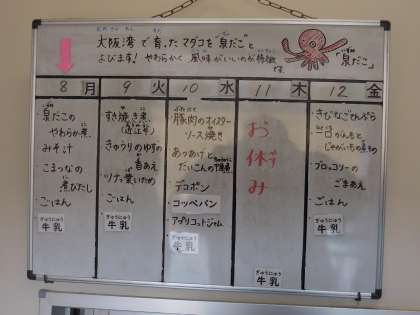 大阪湾で育ったマダコを"泉だこ"と
よびます! やわらかく 風味がいいのが特徴
です。
「泉だこ」
8 月
9 火
10 水
11 木
12 金
・泉だこの
やわらか煮
・みそ汁
・こまつなの
煮びたし
・ごはん
ぎゅうにゅう
牛乳
・すき焼き煮
・きゅうりのゆず
あえ
・ツナそぼろいため
・ごはん
ぎゅうにゅう
牛乳
・豚肉のオイスター
ソース焼き
・あつあげと
だいこんの
・デコポン
・コッペパン
・アプリコットジャム
ぎゅうにゅう
牛乳
お休み
ぎゅうにゅう
牛乳
・きびなごてんぷら
じゃがいもの
・ブロッコリーの
ごまあえ
・ごはん
ぎゅうにゅう
牛乳